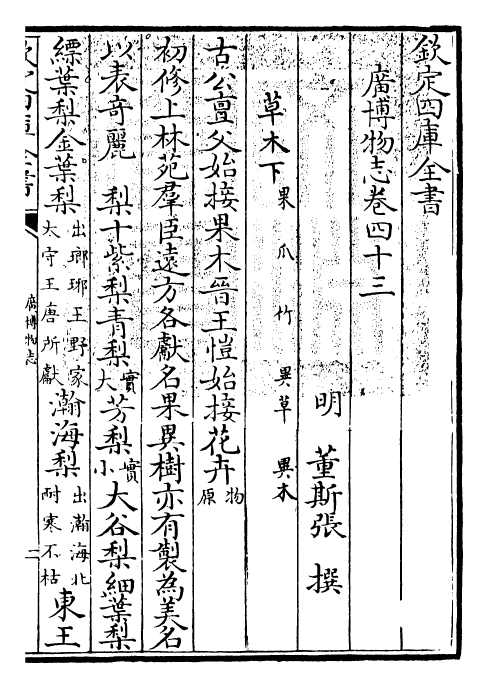 欽定四庫全書
廣博物志卷四十三
明 董斯張 撰
草木下果 瓜 竹 異草 異木
古公亶父始接果木晉王愷始接花卉物原
初修上林苑羣臣遠方各獻名果異樹亦有製為美名
以表奇麗 梨十紫梨青梨實大芳梨實小大谷梨細葉梨
縹葉梨金葉梨出瑯琊王野家太守王唐所獻瀚海梨出瀚海北耐寒不枯東王
廣博物志